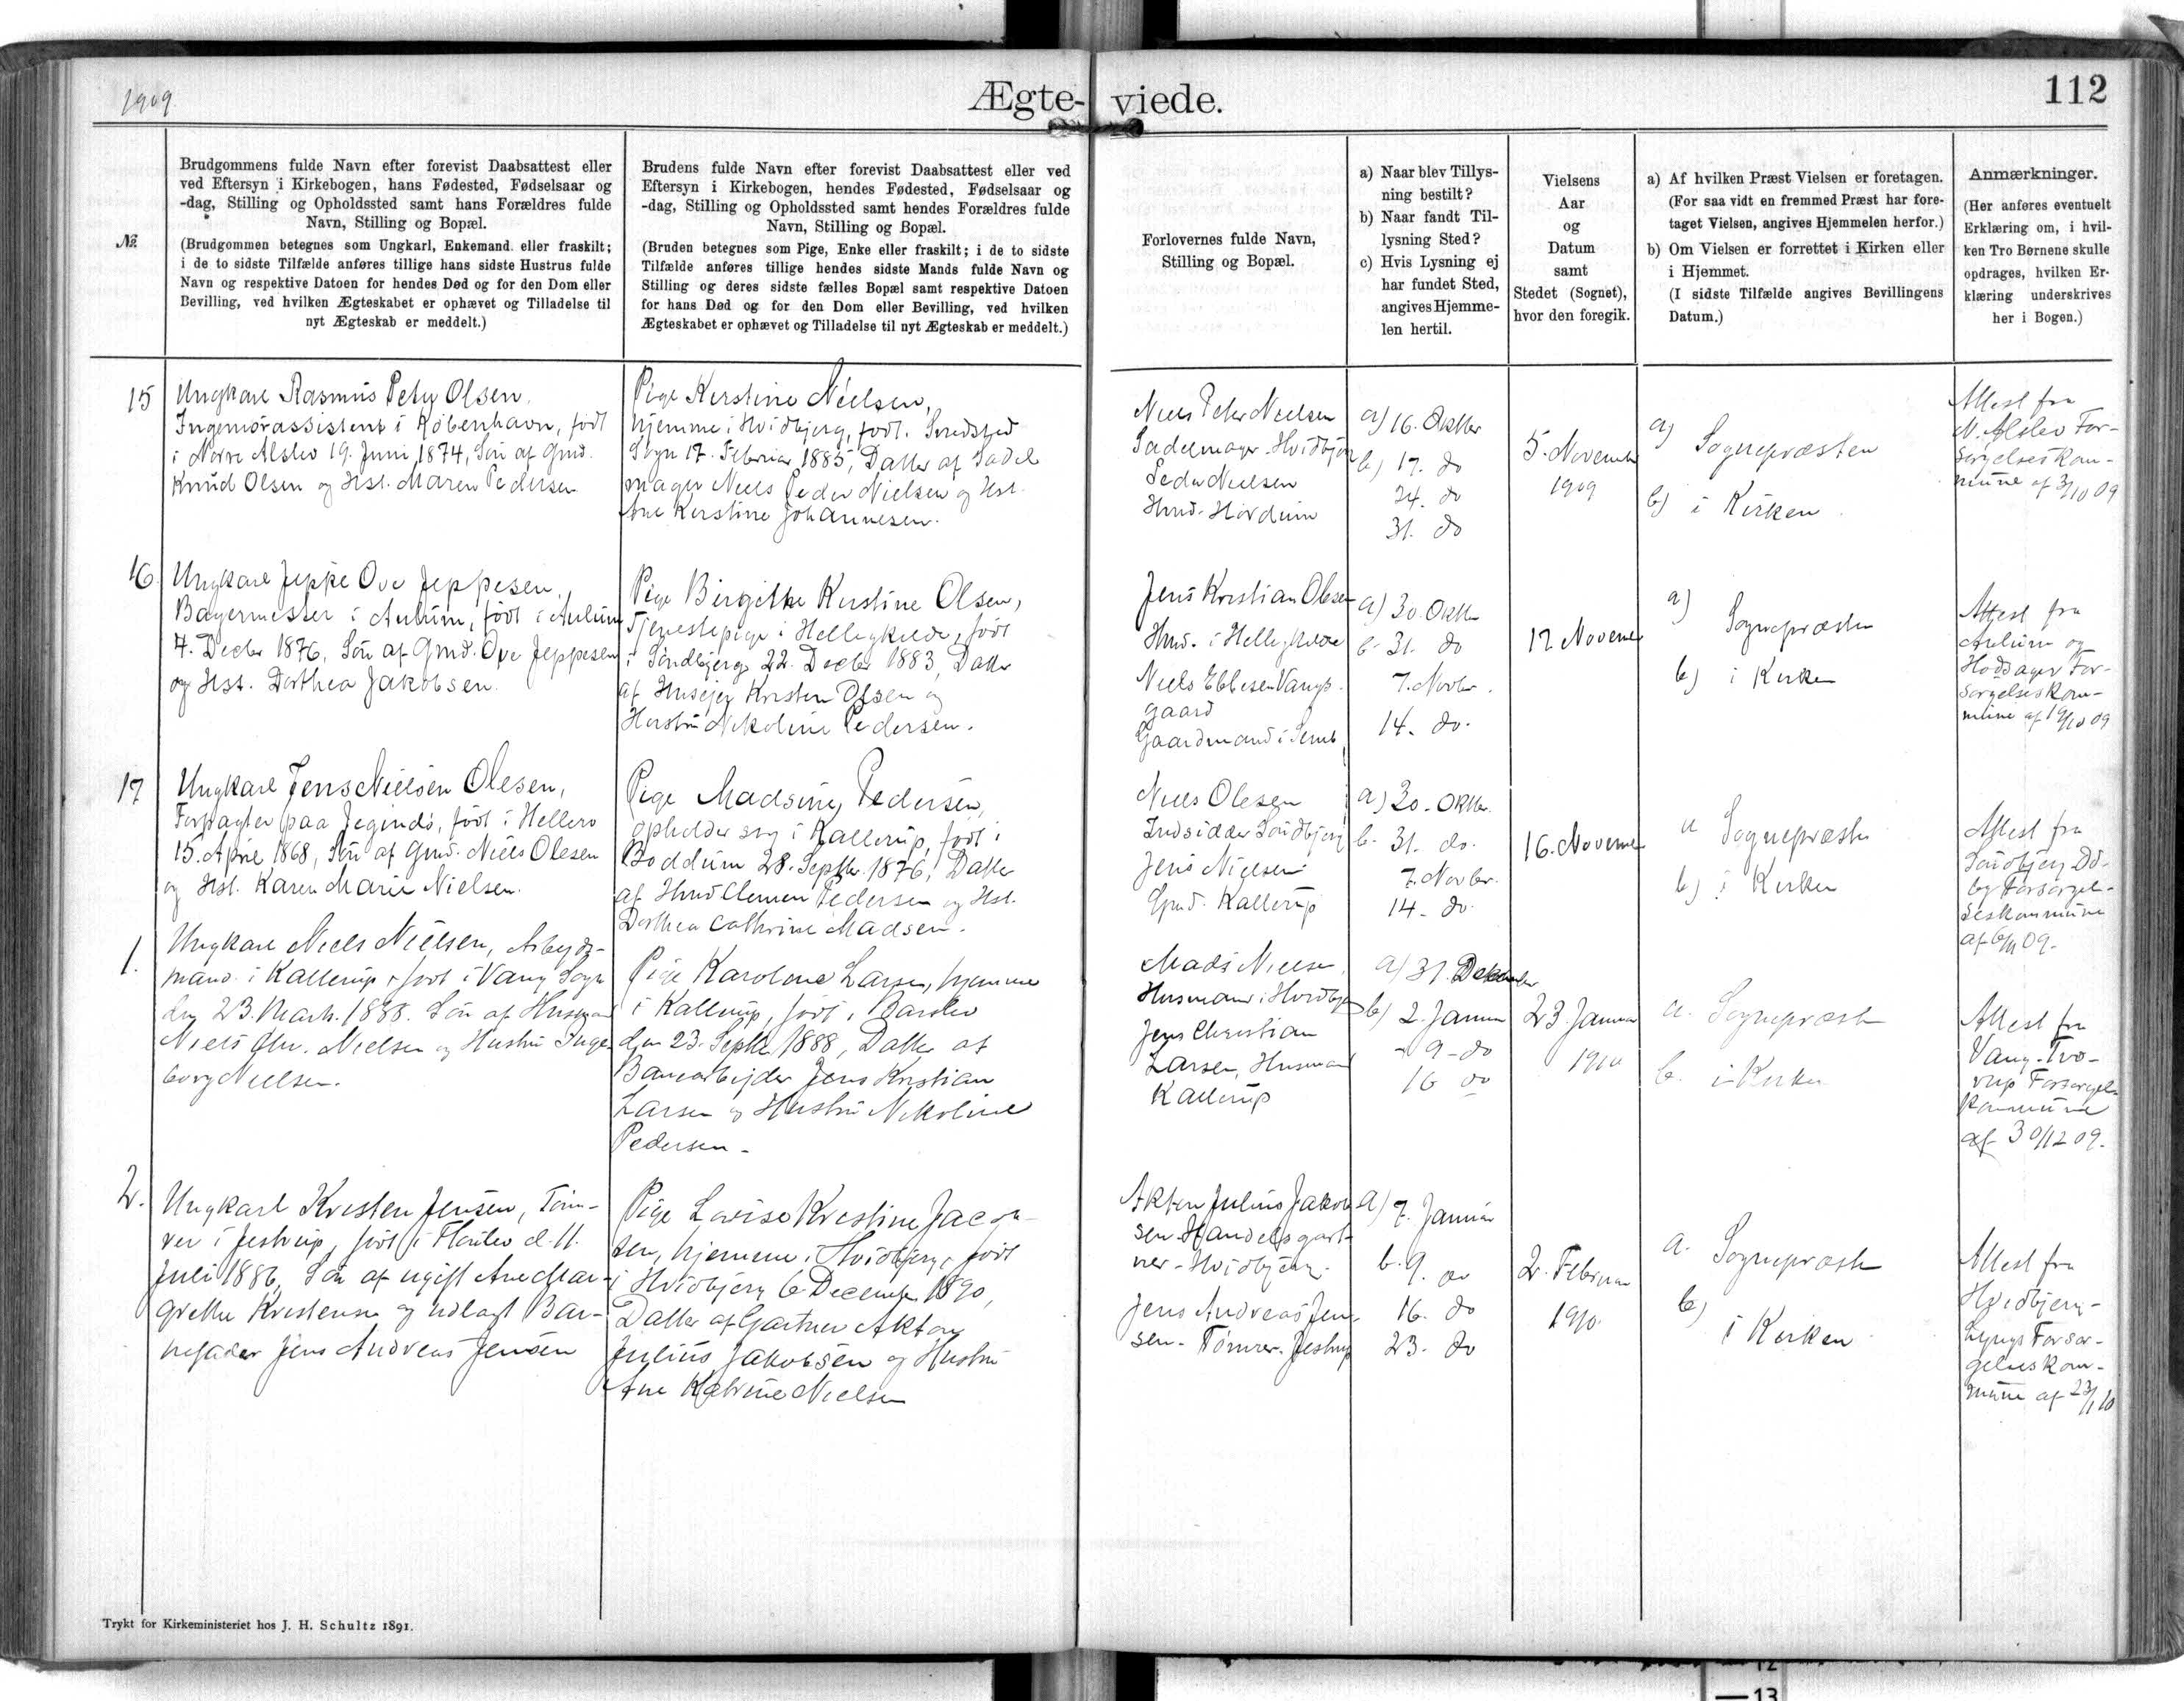 1909
Ægte-viede.
112
№
Brudgommens fulde Navn efter forevist Daabsattest eller
ved Eftersyn i Kirkebogen, hans Fødested, Fødselsaar og
-dag, Stilling og Opholdssted samt hans Forældres fulde
Navn, Stilling og Bopæl.
(Brudgommen betegnes som Ungkarl, Enkemand eller fraskilt;
i de to sidste Tilfælde anføres tillige hans sidste Hustrus fulde
Navn og respektive Datoen for hendes Død og for den Dom eller
Bevilling, ved hvilken Ægteskabet er ophævet og Tilladelse til
nyt Ægteskab er meddelt.)
Brudens fulde Navn efter forevist Daabsattest eller ved
Eftersyn i Kirkebogen, hendes Fødested, Fødselsaar og
-dag, Stilling og Opholdssted samt hendes Forældres fulde
Navn, Stilling og Bopæl.
(Bruden betegnes som Pige, Enke eller fraskilt; i de to sidste
Tilfælde anføres tillige hendes sidste Mands fulde Navn og
Stilling og deres sidste fælles Bopæl samt respektive Datoen
for hans Død og for den Dom eller Bevilling, ved hvilken
Ægteskabet er ophævet og Tilladelse til nyt Ægteskab er meddelt.)
Forlovernes fulde Navn,
Stilling og Bopæl.
a) Naar blev Tillys-
ning bestilt?
b) Naar fandt Til-
lysning Sted?
c) Hvis Lysning ej
har fundet Sted,
angives Hjemme-
len hertil.
Vielsens
Aar
og
Datum
samt
Stedet (Sognet),
hvor den foregik.
a) Af hvilken Præst Vielsen er foretagen.
(For saa vidt en fremmed Præst har fore-
taget Vielsen, angives Hjemmelen herfor.)
b) Om Vielsen er forrettet i Kirken eller
i Hjemmet.
(I sidste Tilfælde angives Bevillingens
Datum.)
Anmærkninger.
(Her anføres eventuelt
Erklæring om, i hvil-
ken Tro Børnene skulle
opdrages, hvilken Er-
klæring underskrives
her i Bogen.)
15
Ungkarl Rasmus Peter Olsen,
Ingeniørassistent i København, født
i Nørre Alslev 19. Juni 1874, Søn af Gmd.
Knud Olsen og Hst. Maren Pedersen
Pige Kirstine Nielsen,
hjemme i Hvidbjerg, født. Snedsted
Sogn 17. Februar 1885, Datter af Sadel
mager Niels Peder Nielsen og Hst.
Ane Kirstine Johannesen.
Niels Peter Nielsen
Sadelmager Hvidbjer
Peder Nielsen
Hmd. Hørdum
a) 16. Oktbr
b) 17. do
24. do
31. do
5. November
1909
a) Sognepræsten
b) i Kirken
Attest fra
N. Alslev For-
sørgelseskom-
mune af 3/10 09
16.
Ungkarl Jeppe Ove Jeppesen,
Bagermester i Aulum, født i Aulum
4. Decbr 1876, Søn af Gmd. Ove Jeppesen
og Hst. Dorthea Jakobsen.
Pige Birgitte Kirstine Olsen,
Tjenestepige i Helligkilde, født
i Søndbjerg 22. Decbr 1883, Datter
af Husejer Kristen Olsen og
Hustru Nikoline Pedersen.
Jens Kristian Olesen
Hmd. i Helligkilde
Niels Ebbesen Vangs-
gaard
Gaardmand i
a) 30. Oktbr
b. 31. do
7. Novbr.
14. do.
17 Novem
a) Sognepræsten
b) i Kirken
Attest fra
Aulum og
Hodsager For-
sørgelseskom-
mune af 19/10 09
17
Ungkarl Jens Nielsen Olesen,
Forpagter paa Jegindø, født i Hellero
15. April 1868, Søn af Gmd. Niels Olesen
og Hst. Karen Marie Nielsen.
Pige Madsine Pedersen,
opholder sig i Kallerup, født i
Boddum 28. Septbr. 1876, Datter
af Hmd Clemen Pedersen og Hst.
Dorthea Cathrine Madsen.
Niels Olesen
Indsidder Søndbjerg
Jens Nielsen
Gmd. Kallerup
a) 30. Oktbr.
b. 31. do.
7. Novbr.
14. do.
16. Novem
a Sognepræsten
b) i Kirken
Attest fra
Søndbjerg Od-
by Forsørgel-
seskommune
af 6/11 09.
1.
Ungkarl Niels Nielsen, Arbejds-
mand i Kallerup, født i Vang Sogn
den 23. Marts. 1888. Søn af Husmand
Niels Chr. Nielsen og Hustru Inge-
borg Nielsen.
Pige Karoline Larsen, hjemme
i Kallerup, født i
den 23. Septbr 1888, Datter af
Banearbejder Jens Kristian
Larsen og Hustru Nikoline
Pedersen.
Mads Nielsen
Husmand i Hvidbjer
Jens Christian
Larsen, Husmand
Kallerup
a) 31. December
b) 2. Januar
- 9 - do
16 do
23. Januar
1910
a. Sognepræsten
b. i Kirken
Attest fra
Vang-Tvo-
rup Forsørgels-
kommune
af 30/12 09.
2.
Ungkarl Kristen Jensen, Tøm-
rer i Jestrup, født i d. 11.
Juli 1886, Søn af ugift Ane Mar-
grethe Kristensen og udlagt Bar-
nefader Jens Andreas Jensen
Pige Lovise Kirstine Jacob-
sen, hjemme i Hvidbjerg, født
i Hvidbjerg 6 December 1890,
Datter af Gartner Akton
Julius Jakobsen og Hustru
Ane Katrine Nielsen
Akton Julius Jakob
sen Handelsgart-
ner - Hvidbjerg.
Jens Andreas Jen-
sen - Tømrer. Jestrup
a) 7. Januar
b. 9. do
16. do
23. do
2. Februar
1910.
a. Sognepræsten
b) i Kirken
Attest fra
Hvidbjerg-
Lyngs Forsør-
gelseskom-
mune af 23/1 10
Trykt for Kirkeministeriet hos J. H. Schultz 1891.
12
13